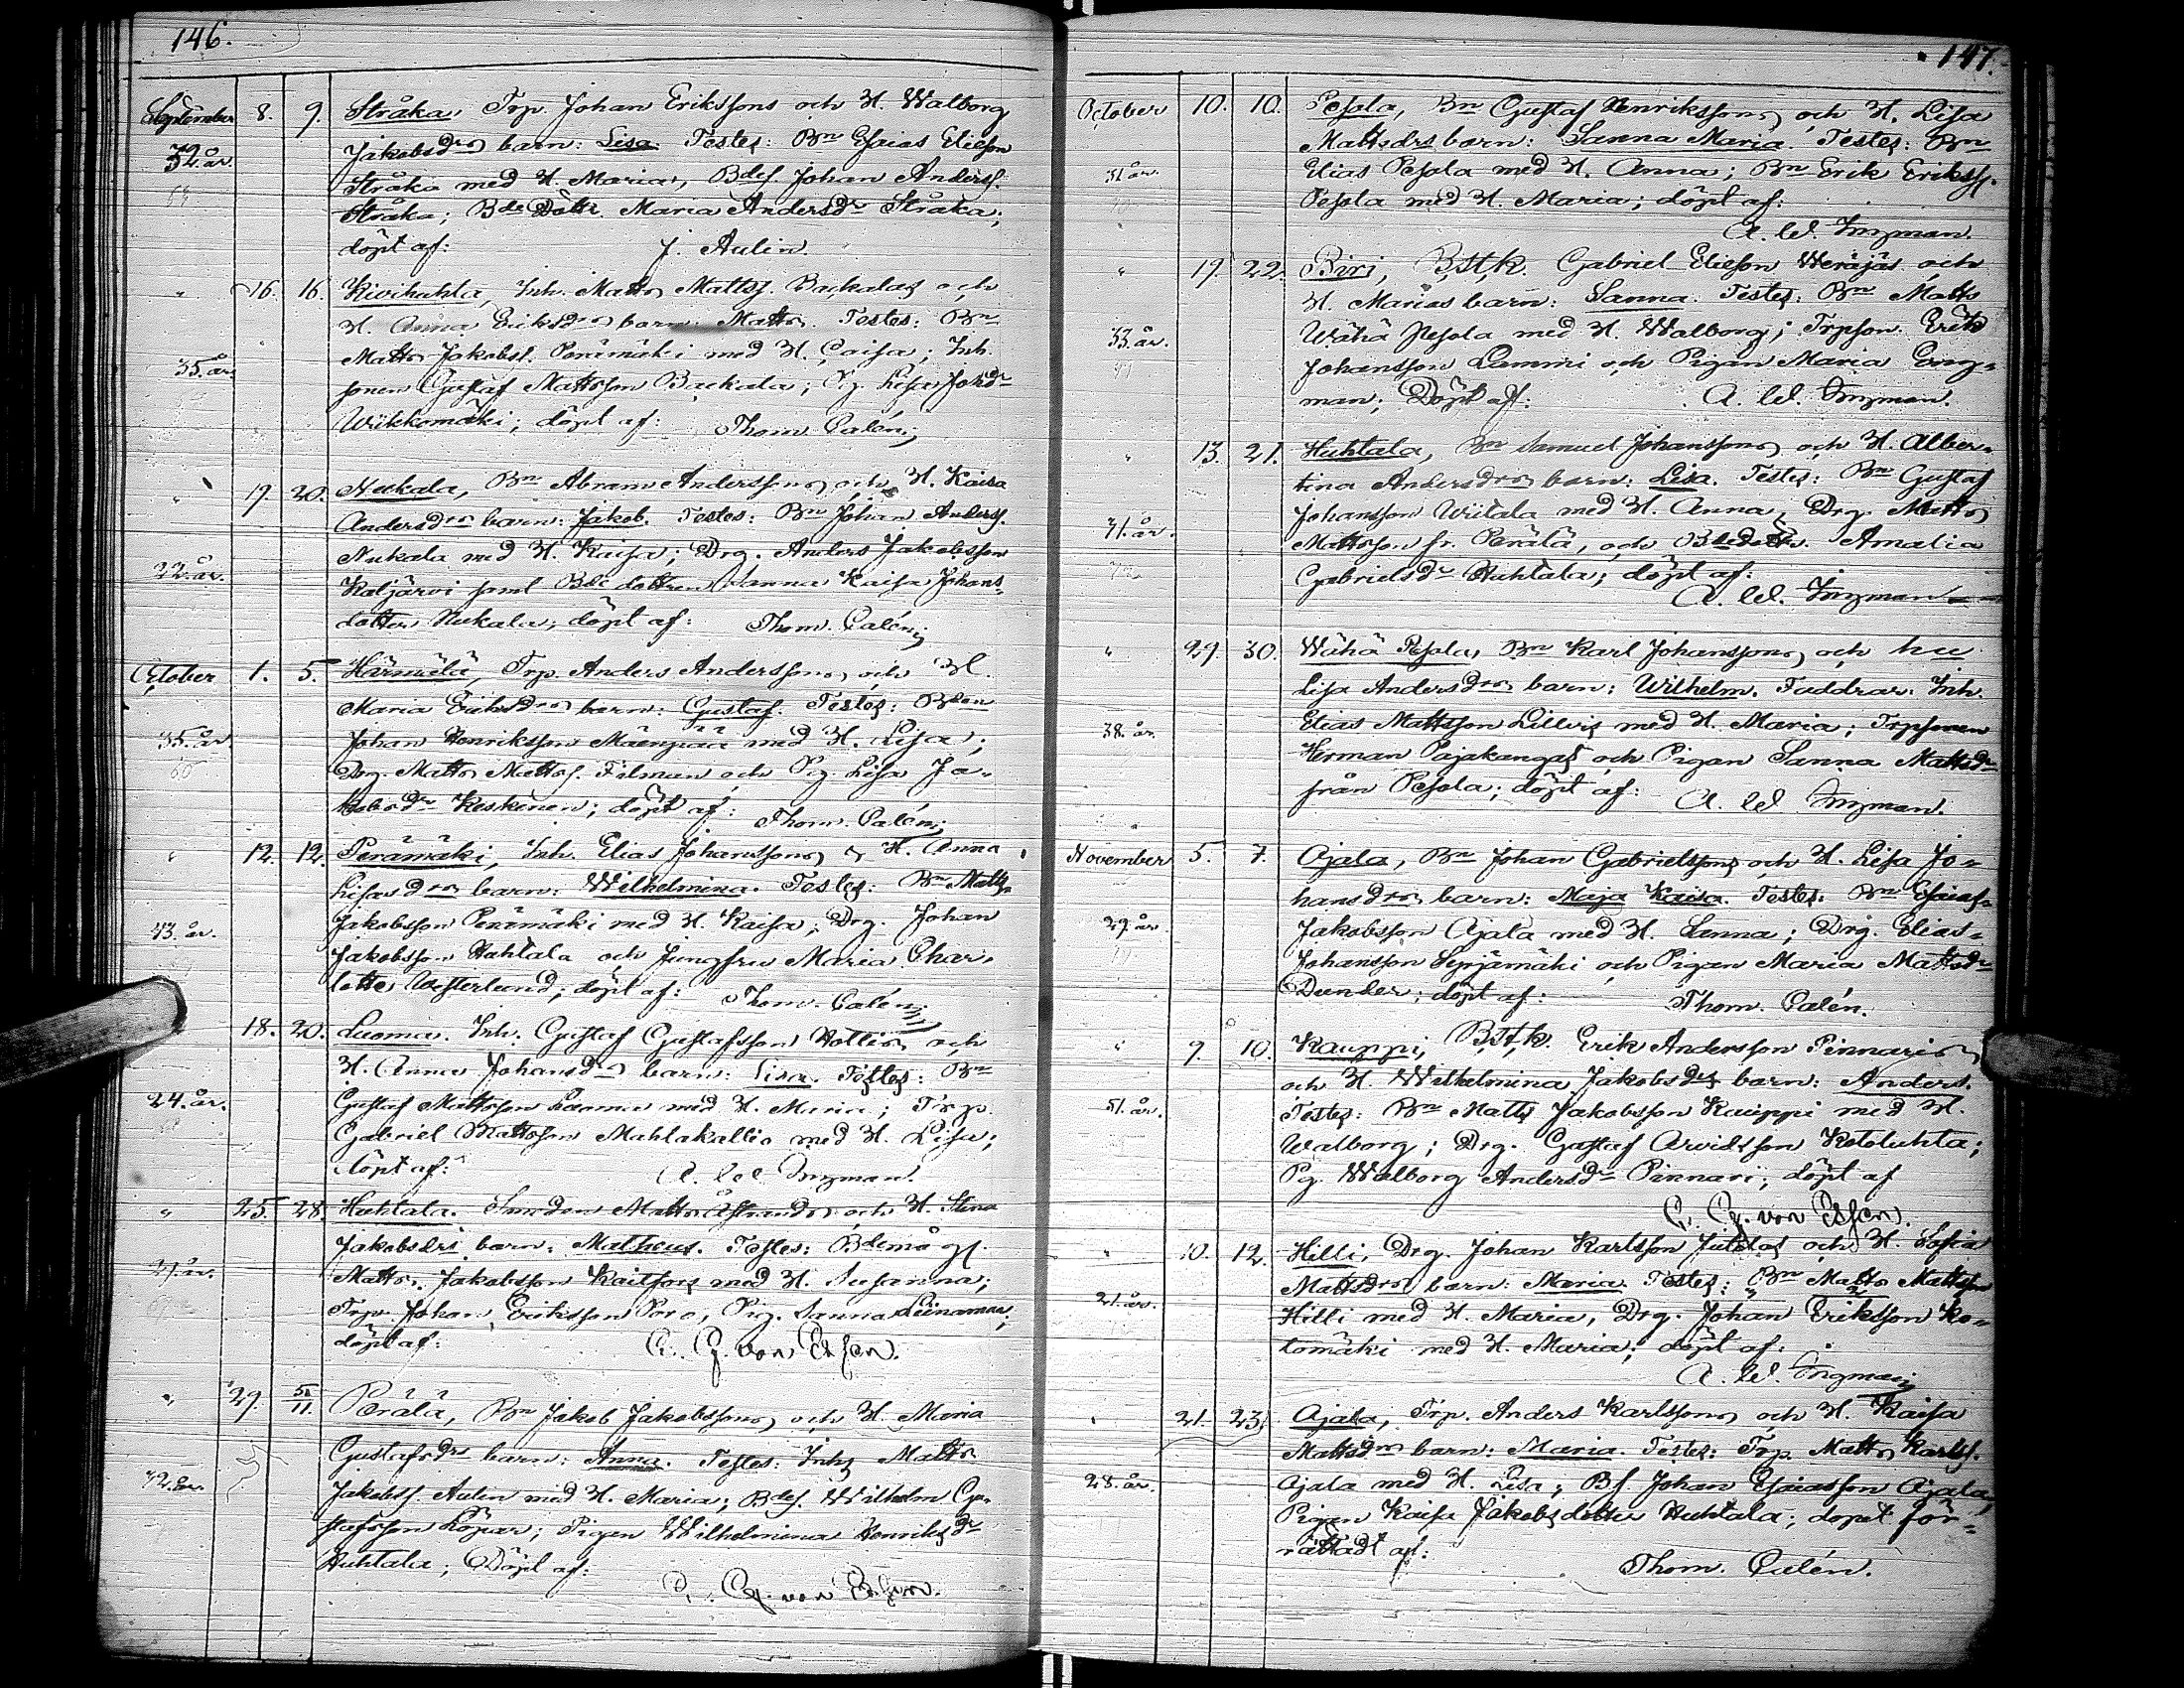 146.
September 8. 9. Stråka, Trp. Johan Erikssons och H. Walborg
32. år. Jakobsdrs barn: Lisa. Testes: Bn Esaias Elieson
Stråka med H. Maria, Bdes. Johan Anderss.
Stråka; Bde Dottr. Maria Andersdr Stråka;
döpt af: J. Aulin.
" 16. 16. Kivihuhta, Inh. Matts Mattss. Backalas och
H. Anna Eriksdrs barn: Matts. Testes: Bn
35. år. Matts Jakobss. Perämäki med H. Caisa; Inh.
sonen Gustaf Mattsson Backala; Pig. Lisa Johdr
Wiikkomäki; döpt af: Thom. Calén;
" 19. 20. Nukala, Bn Abram Anderssons och H. Kaisa
Andersdrs barn: Jakob. Testes: Bn Johan Anderss.
22. år. Nukala med H. Kaisa; Drg. Anders Jakobsson
Kaljärvi samt Bde dottren Sanna Kaisa Johans-
dotter Nukala; döpt af: Thom. Calén;
October 1. 5. Härmälä, Trp. Anders Anderssons och H.
Maria Eriksdrs barn: Gustaf. Testes: Bden
35. år Johan Henriksson Mäenpää med H. Lisa;
Drg. Matts Mattss. Filman och Pig. Lisa Ja-
kobsdr Keskinen; döpt af: Thom. Calén;
" 12. 12. Perämäki, Inh. Elias Johanssons & H. Anna
Lisasdrs barn: Wilhelmina. Testes: Bn Matts
43. år. Jakobsson Perämäki med H. Kaisa; Drg. Johan
Jakobsson Huhtala och Jungfru Maria Char-
lotte Westerlund; döpt af: Thom. Calén;
18. 20. Luoma. Inh. Gustaf Gustafsson Hottis och
H. Anna Johansdrs barn: Lisa. Testes: Bn
24. år. Gustaf Mattsson Luoma med H. Maria; Trp.
Gabriel Mattsson Mahlakallio med H. Lisa;
döpt af: A. W. Ingman.
" 25. 28. Huhtala. Smeden Matts Åstrands och H. Stina
Jakobsdrs barn: Matheus. Testes: Bdemågs.
Matts Jakobsson Kaitfors med H. Susanna;
Trp. Johan Eriksson Poro, Pig. Sanna Liinamaa;
döpt af: C. G. von Essen.
" 29. 5/11. Perälä, Bn Jakob Jakobssons och H. Maria
Gustafsdrs barn: Anna. Testes: Inhs Matts
42. år. Jakobss. Aulin med H. Maria; Bdes. Wilhelm Gu-
stafsson Löpar; Pigan Wilhelmina Henriksdr
Huhtala; Döpt af:
C. G. von Essen.
147.
October 10. 10. Pesola, Bn Gustaf Henrikssons och H. Lisa
Mattsdrs barn: Sanna Maria. Testes: Bn
31. år. Elias Pesola med H. Anna; Bn Erik Erikss.
Pesola med H. Maria; döpt af:
A. W. Ingman.
" 19. 22. Biri, Bstk. Gabriel Elieson Weräjäs och
H. Marias barn: Sanna. Testes: Bn Matts
33. år. Wähä Pesola med H. Walborg; Trpson. Erik
Johansson Lammi och Pigan Maria Eng-
man; Döpt af: A. W. Ingman.
" 13. 21. Huhtala, Bn Samuel Johanssons och H. Alber-
tina Andersdrs barn: Lisa. Testes: Bn Gustaf
Johansson Wiitala med H. Anna, Drg. Matts
31. år. Mattsson fr. Perälä, och Bdedottr. Amalia
Gabrielsdr Huhtala; döpt af:
A. W. Ingman
" 29. 30. Wähä Pesola, Bn Karl Johanssons och hu
Lisa Andersdrs barn: Wilhelm. Faddrar: Inh.
38. år. Elias Mattsson Lillvis med H. Maria; Trpsonen
Herman Pajakangas och Pigan Sanna Mattsdr
från Pesola; döpt af: A. W. Ingman.
November 5. 7. Ajala, Bn Johan Gabrielssons och H. Lisa Jo-
hansdrs barn: Maja Kaisa. Testes: Bn Esaias
29. år Jakobsson Ajala med H. Sanna; Drg. Elias
Johansson Syrjämäki och Pigan Maria Mattsdr
Dunder; döpt af: Thom. Calén.
" 9. 10. Kauppi, Bstk. Erik Andersson Pinnaris
och H. Wilhelmina Jakobsdrs barn: Anders.
31. år. Testes: Bn Matts Jakobsson Kauppi med H.
Walborg; Drg. Gustaf Arvidsson Kotoluhta;
Pg. Walborg Andersdr Pinnari; döpt af
C. G. von Essen.
" 10. 12. Hilli, Drg. Johan Karlsson Jutilas och H. Sofia
Mattsdrs barn: Maria. Testes: Bn Matts Mattsson
21. år. Hilli med H. Maria, Drg. Johan Eriksson Ko-
tomäki med H. Maria; döpt af:
A. W. Ingman;
21. 23. Ajala, Trp. Anders Karlssons och H. Kaisa
Mattsdrs barn: Maria. Testes: Trp. Matts Karlss.
28. år. Ajala med H. Lisa; Bs. Johan Esaiasson Ajala,
Pigan Kaisa Jakobsdotter Huhtala; dopet för-
rättadt af:
Thom. Calén.